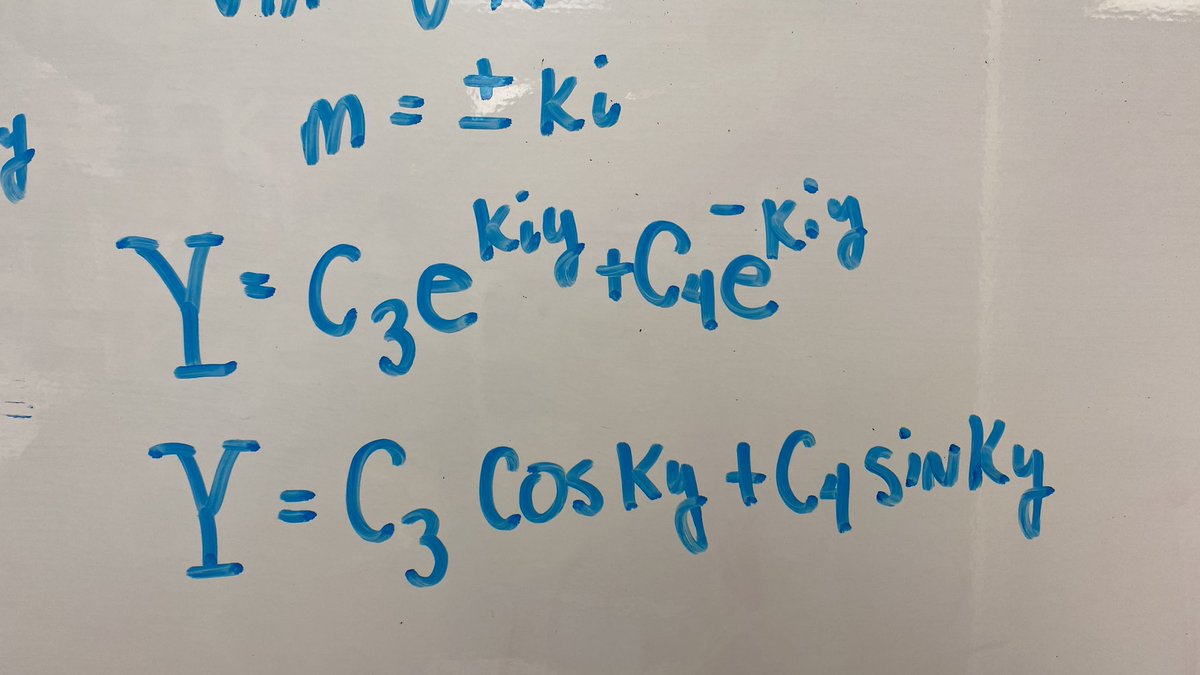 m = ± ki
y
Y = C₃e^kiy + C₄e^-kiy
Y = C₃ cos ky + C₄ sin ky